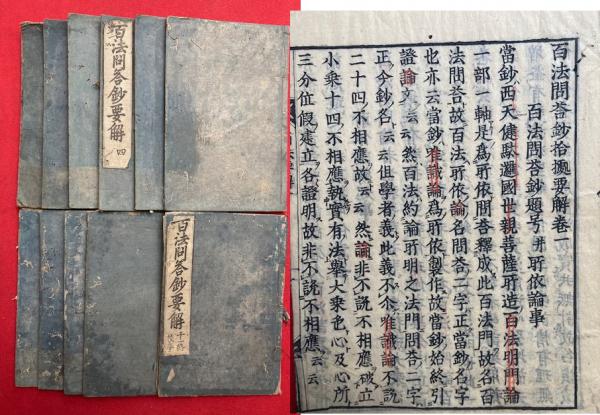 百法問荅鈔要解 四
百法問荅鈔要解 十二終
百法問荅鈔拾摭要解卷一
百法問荅鈔題号并所依論事
當鈔西天健馱邏國世親菩薩所造百法明門論
一部一軸是為所依問荅釋成此百法門故名百
法問荅故百法所依論名問荅二字正當鈔名字
也亦云當鈔唯識論為所依製作故當鈔始終引
證論文云云然百法約論所明之法門問荅二字
正今鈔名云云但學者義此義不尒唯識論不說
二十四不相應故云云然論非不說不相應破立
小乗十四不相應執實有法舉大乗色心及心所
三分位假建立各證明故非不說不相應云云